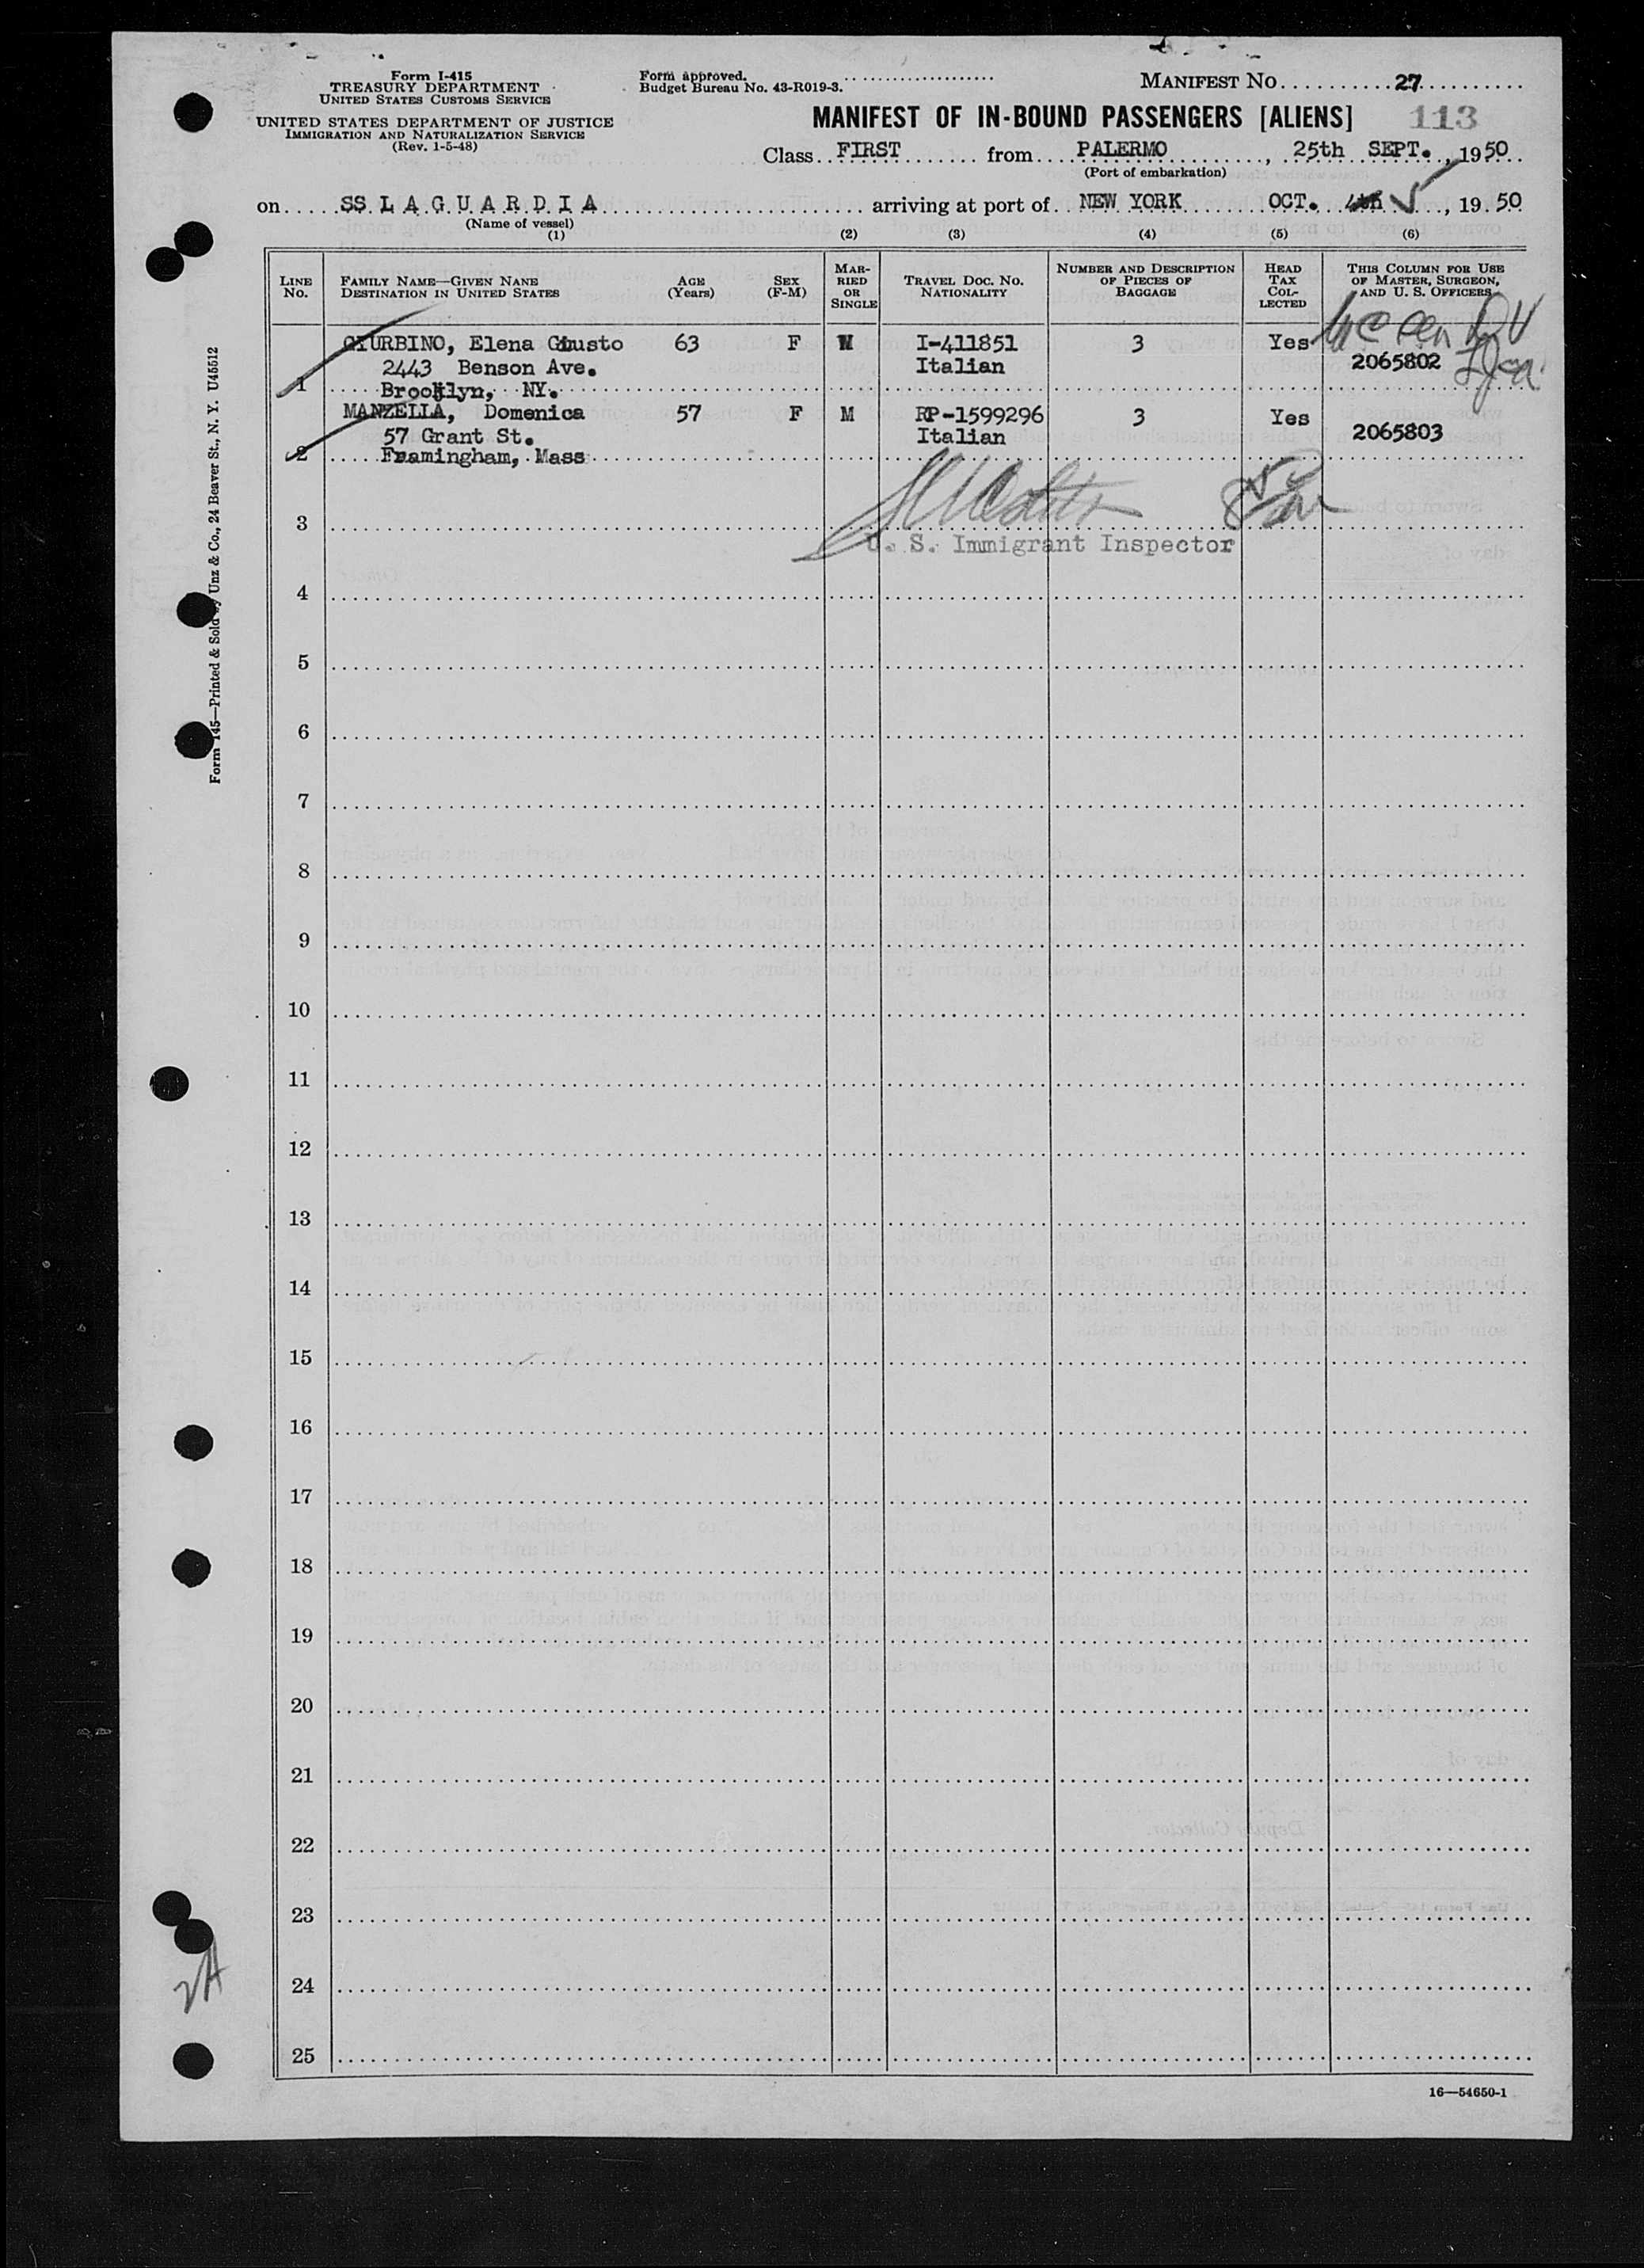 Form I-415
TREASURY DEPARTMENT
UNITED STATES CUSTOMS SERVICE
UNITED STATES DEPARTMENT OF JUSTICE
IMMIGRATION AND NATURALIZATION SERVICE
(Rev. 1-5-48)
Form approved.
Budget Bureau No. 43-R019-3.
MANIFEST NO. 27
MANIFEST OF IN-BOUND PASSENGERS [ALIENS] 113
Class FIRST from PALERMO, 25th SEPT., 1950
(Port of embarkation)
on SS L A G U A R D I A arriving at port of NEW YORK OCT. 4th, 1950
(Name of vessel)
(1) (2) (3) (4) (5) (6)
LINE NO. FAMILY NAME—GIVEN NAME DESTINATION IN UNITED STATES AGE (Years) SEX (F-M) MARRIED OR SINGLE TRAVEL DOC. NO. NATIONALITY NUMBER AND DESCRIPTION OF PIECES OF BAGGAGE HEAD TAX COLLECTED THIS COLUMN FOR USE OF MASTER, SURGEON, AND U. S. OFFICERS
GIURBINO, Elena Giusto 63 F I-411851 3 Yes
2443 Benson Ave. Italian 2065802
1 Brooklyn, NY.
MANZELLA, Domenica 57 F M RP-1599296 3 Yes
57 Grant St. Italian 2065803
2 Framingham, Mass
3
U. S. Immigrant Inspector
4
5
6
7
8
9
10
11
12
13
14
15
16
17
18
19
20
21
22
23
24
25
16—54650-1
Form 145—Printed & Sold by Unz & Co., 24 Beaver St., N. Y. U45512